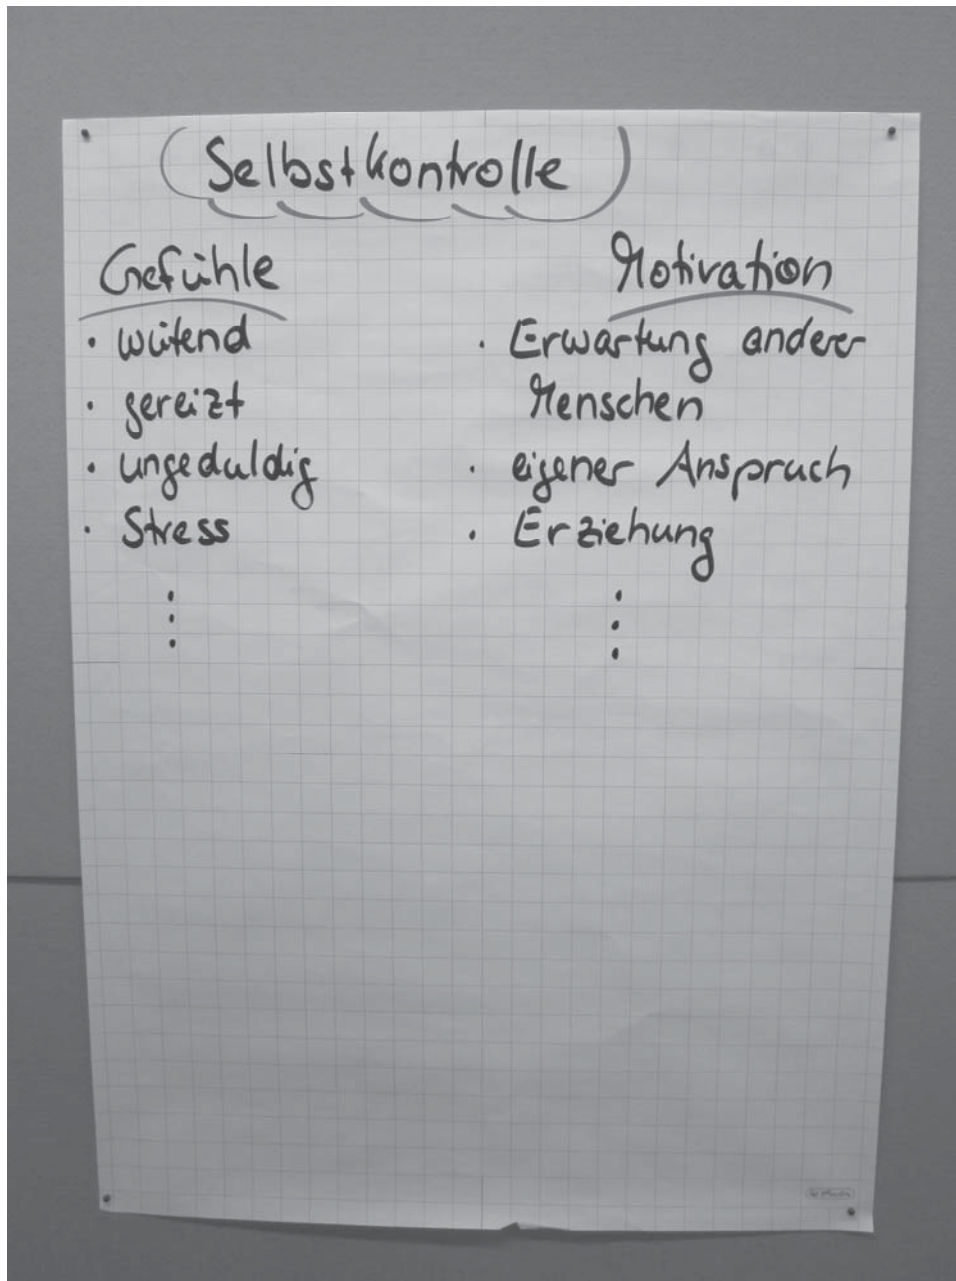 Selbstkontrolle
Gefühle
· wütend
· gereizt
· ungeduldig
· Stress
⋮
Motivation
· Erwartung anderer
Menschen
· eigener Anspruch
· Erziehung
⋮